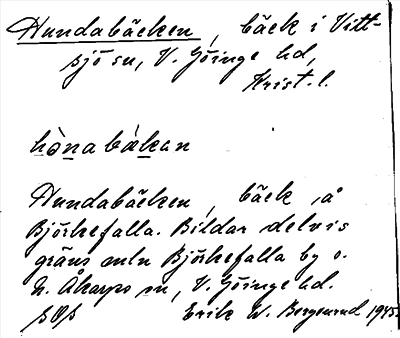 Hundabäcken, bäck i Vitt-
sjö sn, V. Göinge hd,
Krist. l.
hònabàkan
Hundabäcken, bäck å
Björkefalla. Bildar delvis
gräns mln Björkefalla by o.
N. Åkarps sn, V. Göinge hd.
Erik W. Bergenrud 1945.